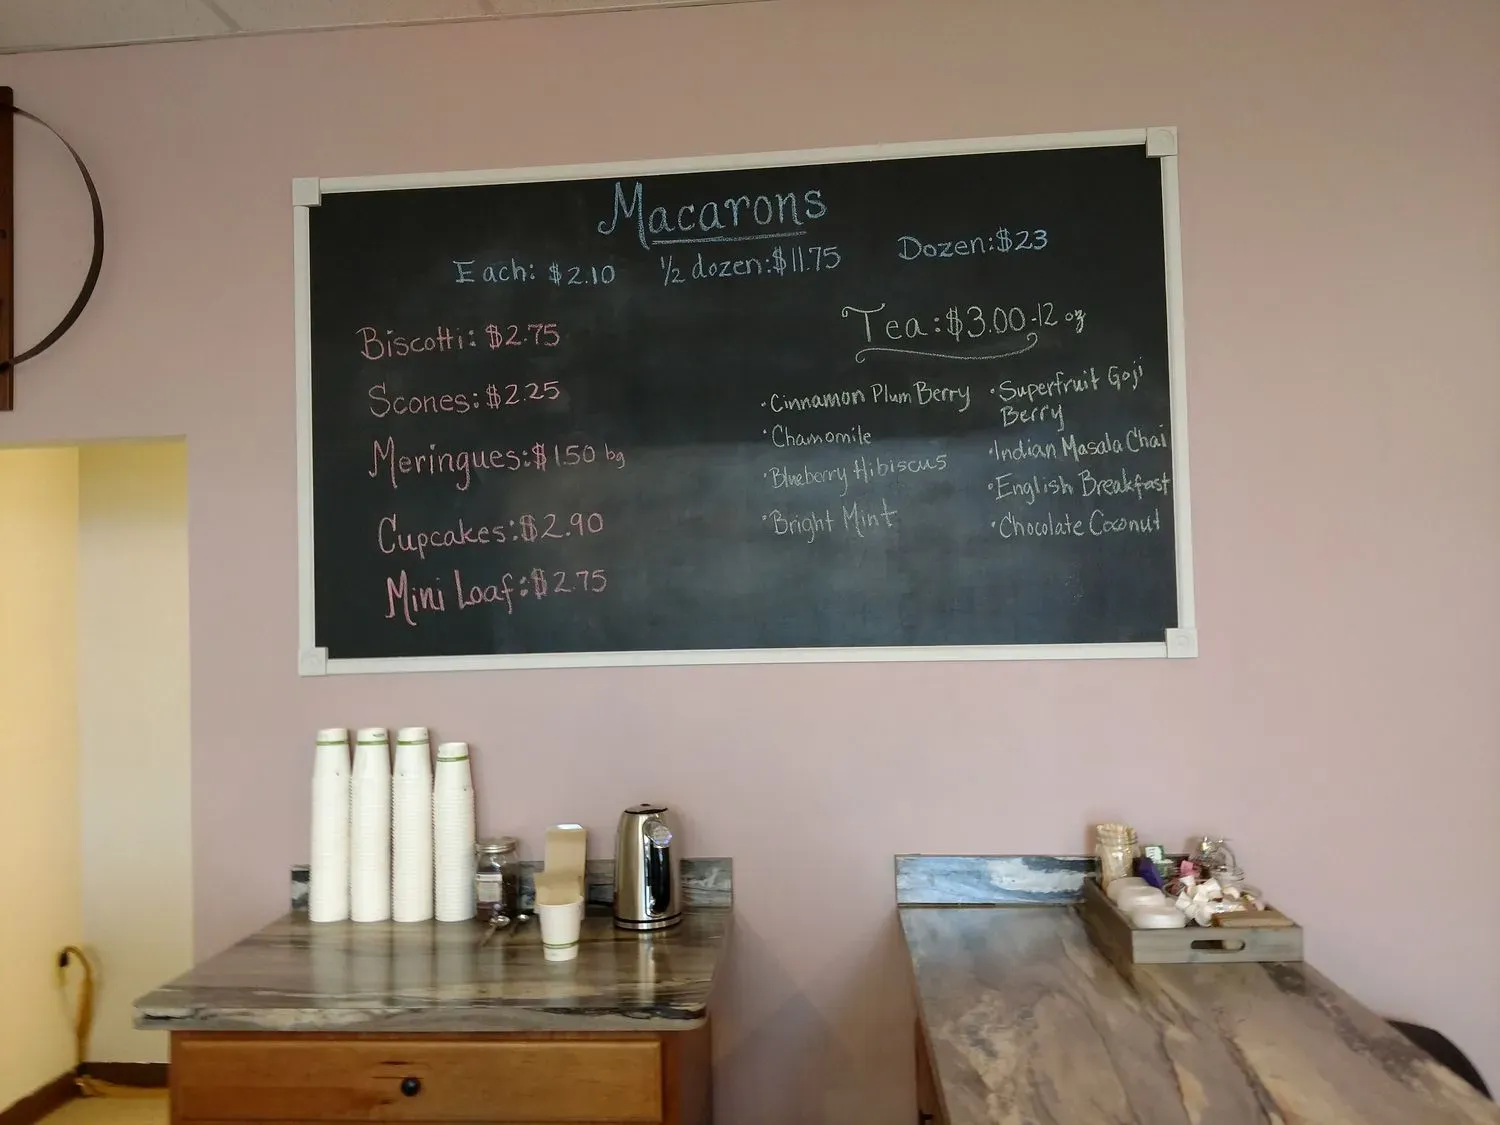 Macarons
Each: $2.10 1/2 dozen:$11.75 Dozen:$23
Biscotti: $2.75
Scones: $2.25
Meringues:$1.50 bg
Cupcakes:$2.90
Mini Loaf:$2.75
Tea:$3.00-12 oz
·Cinnamon Plum Berry
·Chamomile
·Blueberry Hibiscus
·Bright Mint
·Superfruit Goji
Berry
·Indian Masala Chai
·English Breakfast
·Chocolate Coconut